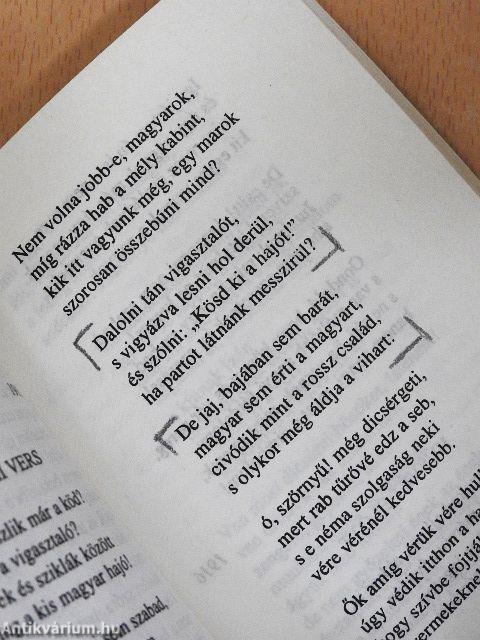 Nem volna jobb-e, magyarok,
míg rázza hab a mély kabint,
kik itt vagyunk még, egy marok
szorosan összebúni mind?
Dalolni tán vigasztalót,
s vigyázva lesni hol derül,
és szólni: „Kösd ki a hajót!”
ha partot látnánk messzirül?
De jaj, bajában sem barát,
magyar sem érti a magyart,
civódik mint a rossz család,
s olykor még áldja a vihart:
ó, szörnyű! még dicsérgeti,
mert rab tűrővé edz a seb,
s e néma szolgaság neki
vére vérénél kedvesebb.
Ők amíg vérük vére hull
úgy védik itthon a
hogy szívbe fojtják
VERS
már a köd?
a vigasztaló?
és sziklák között
a kis magyar hajó!
szabad,
1916
Antikvárium.hu